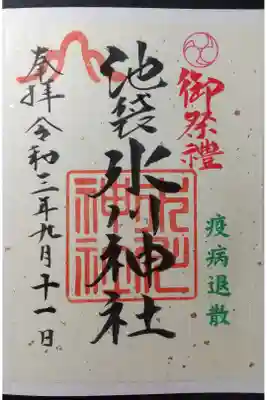 御祭禮
疫病退散
池袋氷川神社
奉拝令和二年九月十一日